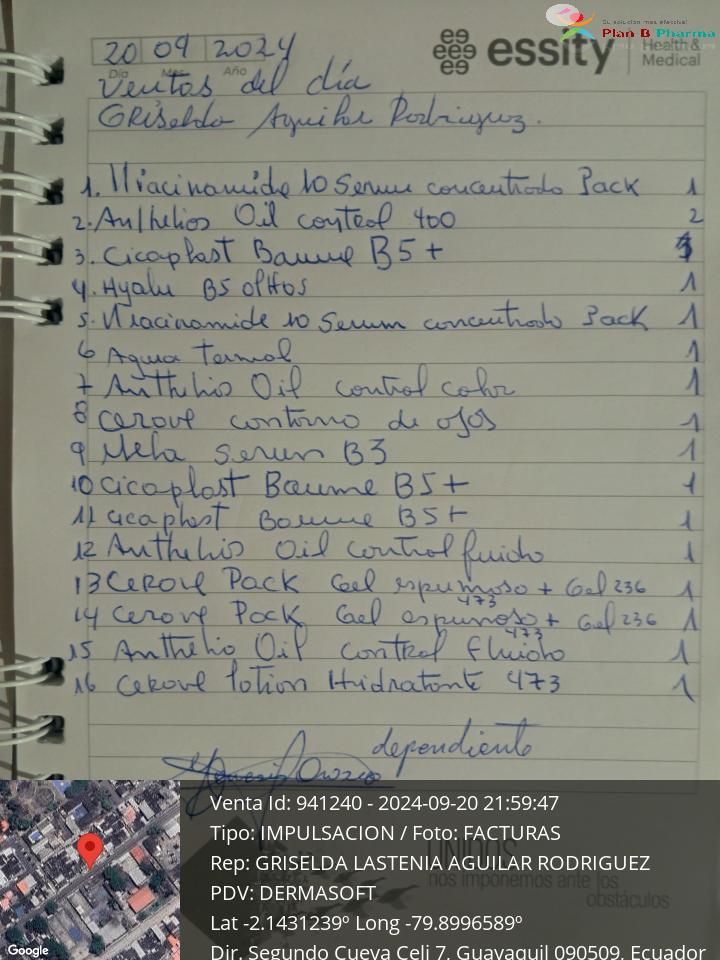 Su solución más efectiva!
Plan B Pharma
essity Health & Medical
20 09 2024
Día Mes Año
Ventas del día
Griselda Aguilar Rodriguez.
1. Niacinamide 10 Serum concentrado Pack 1
2. Anthelios Oil control 400 2
3. Cicaplast Baume B5+
4. Hyalu B5 olHos 1
5. Niacinamide 10 Serum concentrado Pack 1
6 Agua Termal 1
7 Anthelio Oil control color 1
8 cerave contorno de ojos 1
9 Mela Serum B3 1
10 cicaplast Baume B5+ 1
11 cicaplast Baume B5+ 1
12 Anthelio Oil control fluido 1
13 Cerave Pack Gel espumoso 473 + Gel 236 1
14 Cerave Pack Gel espumoso 473 + Gel 236 1
15 Anthelio Oil control fluido 1
16 Cerave lotion Hidratante 473 1
dependiente
Orozco
UNIDOS
nos imponemos ante los
obstáculos
Venta Id: 941240 - 2024-09-20 21:59:47
Tipo: IMPULSACION / Foto: FACTURAS
Rep: GRISELDA LASTENIA AGUILAR RODRIGUEZ
PDV: DERMASOFT
Lat -2.1431239º Long -79.8996589º
Dir. Segundo Cueva Celi 7, Guayaquil 090509, Ecuador
Google